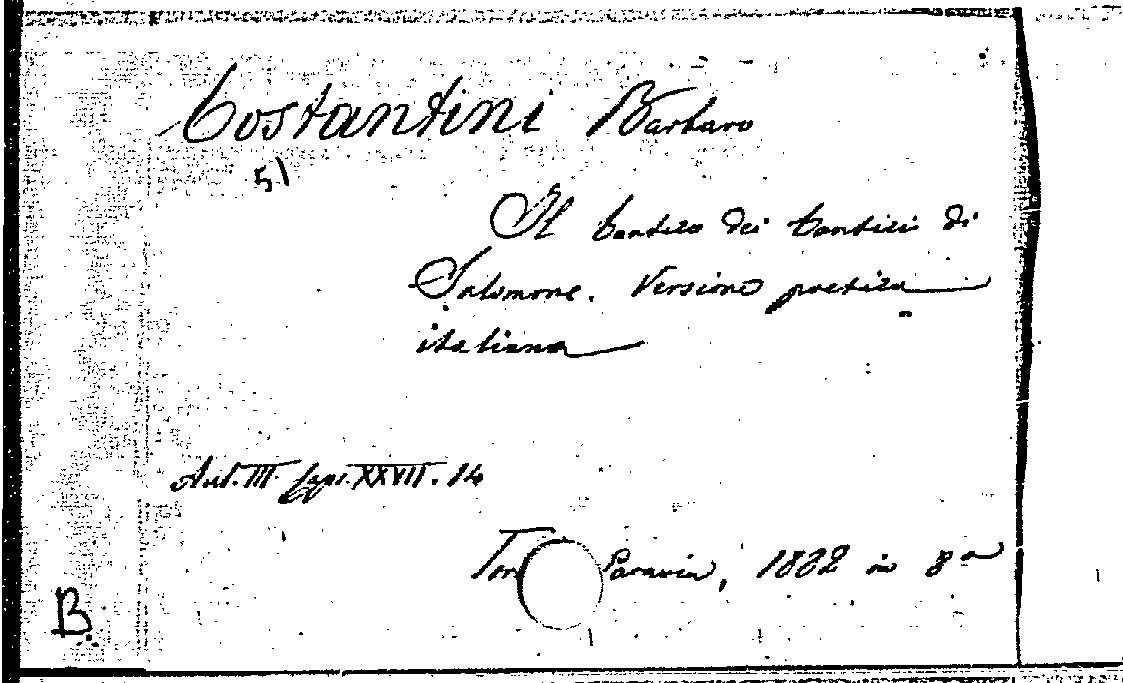 Costantini Barbaro
51
Il Cantico dei Cantici di
Salomone. Versione poetica
italiana
Aul. III. Capi. XXVII. 14
Tor Paravia, 1882 in 8°
B.